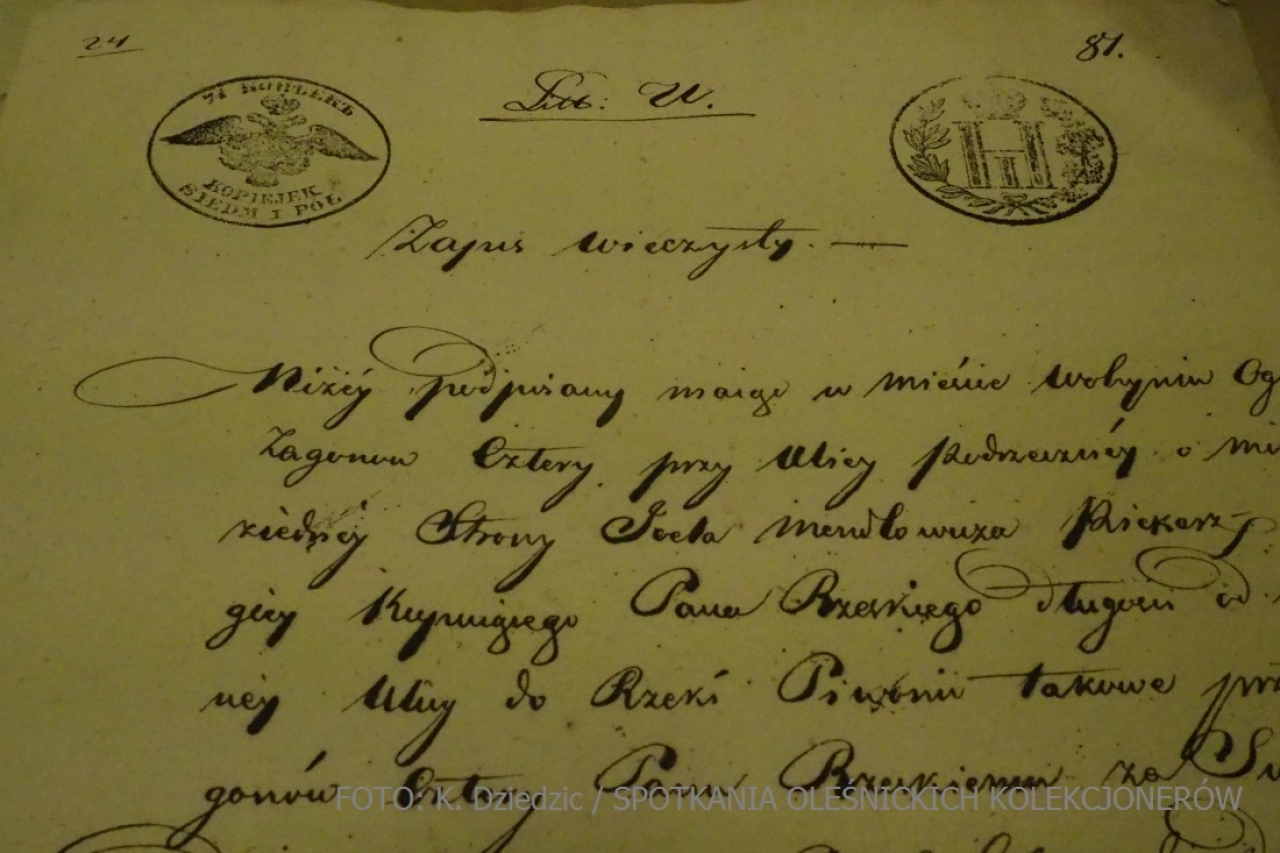 24
81.
7½ КОПѢЕКЪ
KOPIEJEK
SIEDM I PÓŁ
Litt: U.
H I
Zapis wieczysty. —
Niżéy podpisany maiąc w mieście Wohyniu Og
Zagonow Cztery przy Ulicy Podrzeczney o mi
ziedney Strony Joela Mendlowicza Piekarz
giey Kupuiącego Pana Rzeskiego długość od
ney Ulicy do Rzeki Piwonii takowe prz
gonów Cztery Panu Rzeskiemu za Su
FOTO: K. Dziedzic / SPOTKANIA OLEŚNICKICH KOLEKCJONERÓW